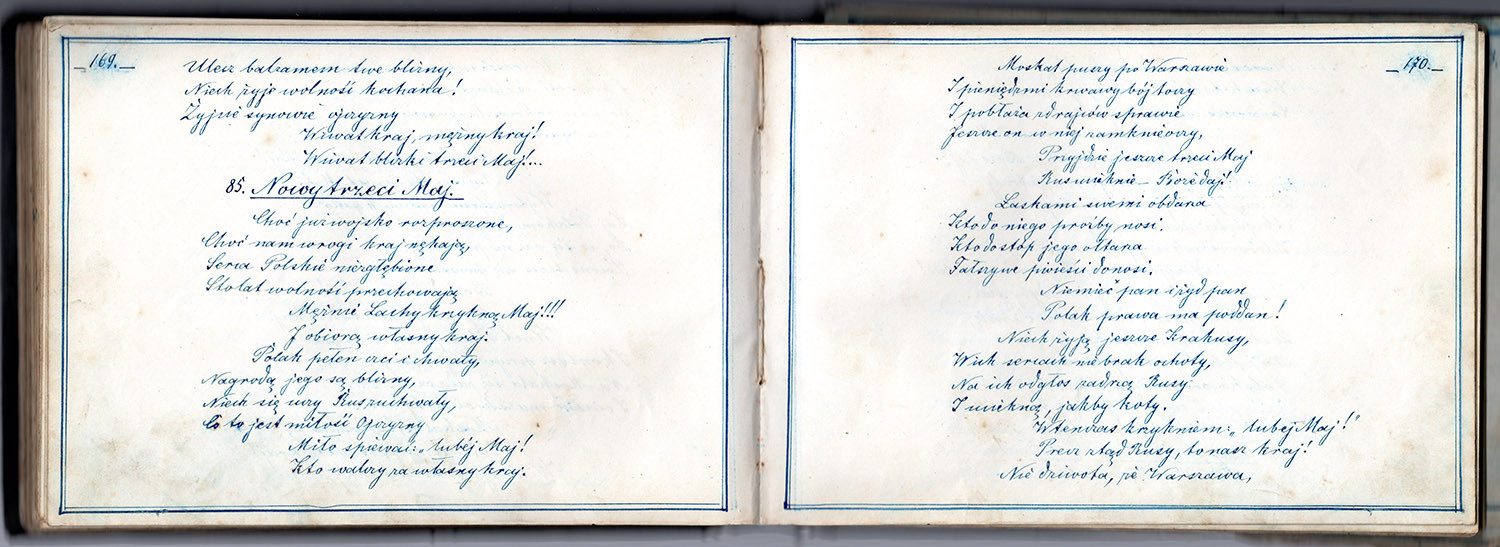 169.
Ulecz balzamem twe blizny,
Niech żyje wolność kochana!
Żyjcie synowie ojczyzny
Wiwat kraj, mężny kraj!
Wiwat blizki trzeci Maj!...
85. Nowy trzeci Maj.
Choć już wojsko rozproszone,
Choć nam wrogi kraj nękają,
Serca Polskie niezgłębione
Sto lat wolność przechowają
Mężnie Lachy krzykną Maj!!!
I obiorą własny kraj.
Polak pełen czci i chwały,
Nagrodą jego są blizny,
Niech się uczy Rus zuchwały,
Co to jest miłość Ojczyzny
Miło śpiewać: „lubéj Maj!
Kto walczy za własny kraj.
170.
Moskal puszy po Warszawie
I pieniędzmi krwawy bój toczy
I pobłaża zdrajców sprawie
Jeszcze on w niej zamknie oczy,
Przyjdzie jeszcze trzeci Maj
Rus ucieknie – Boże daj!
Łaskami swemi obdarza
Kto do niego prośby nosi.
Kto do stóp jego ołtarza
Fałszywe pieści donosi.
Niemieć pan i żyd pan
Polak prawa ma poddan!
Niech żyją jeszcze Krakusy,
W ich sercach nie brak ochoty,
Na ich odgłos zadrżą Rusy
I uciekną, jakby koty.
Wtenczas krzykniem: „lubéj Maj!"
Precz ztąd Rusy, to nasz kraj!
Nie dziwota, że Warszawa,